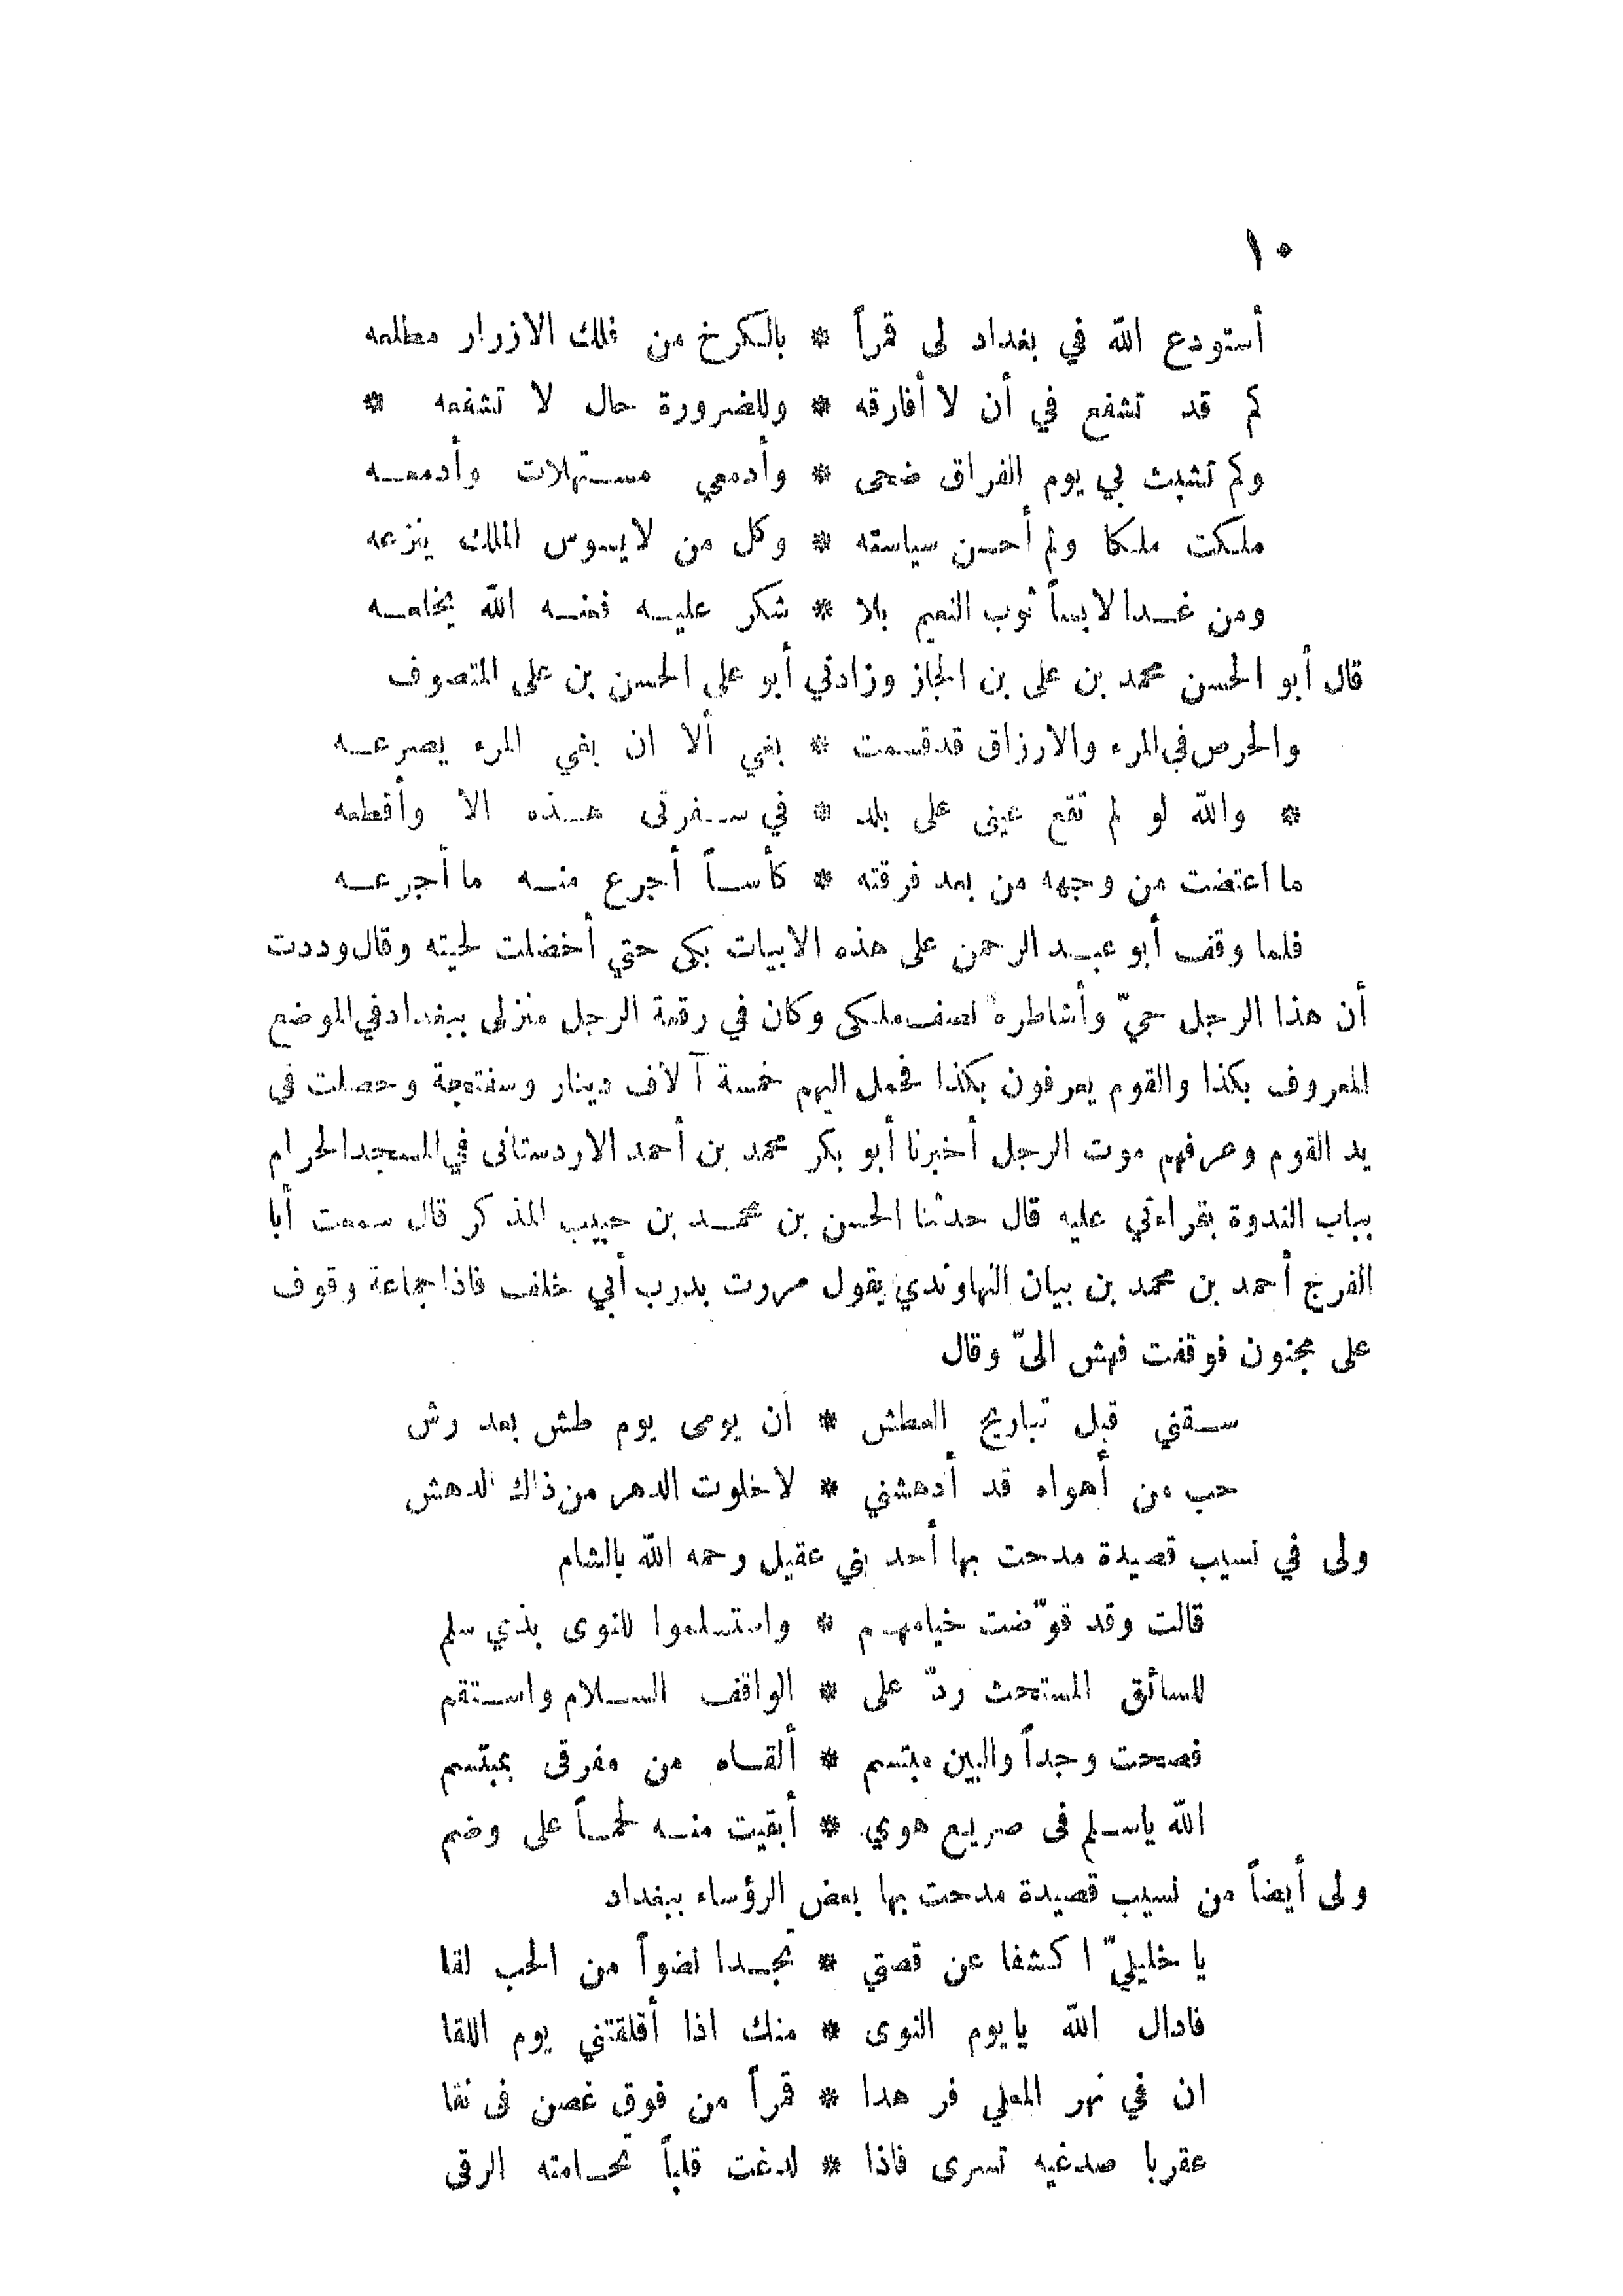 ١٠
أستودع الله في بغداد لى قمراً * بالكرخ من فلك الازرار مطلعه
كم قد تشفع في أن لا أفارقه * وللضرورة حال لا تشفعه *
وكم تشبث بي يوم الفراق ضحى * وأدمعي مستهلات وأدمعه
ملكت ملكا ولم أحسن سياسته * وكل من لايسوس الملك ينزعه
ومن غدا لابساً ثوب النعيم بلا * شكر عليه فعنه الله يخلعه
قال أبو الحسن محمد بن على بن الجاز وزادني أبو على الحسن بن على المتصوف
والحرص في المرء والارزاق قد قسمت * بغي ألا ان بغي المرء يصرعه
* والله لو لم تقع عينى على بلد * في سفرتى هذه الا وأقطعه
ما اعتضت من وجهه من بعد فرقته * كأساً أجرع منه ما أجرعه
فلما وقف أبو عبد الرحمن على هذه الابيات بكى حتي أخضلت لحيته وقال وددت
أن هذا الرجل حيّ وأشاطره نصف ملكى وكان في رقعة الرجل منزلى ببغداد في الموضع
المعروف بكذا والقوم يعرفون بكذا فحمل اليهم خمسة آلاف دينار وسفتجة وحصلت في
يد القوم وعرفهم موت الرجل أخبرنا أبو بكر محمد بن أحمد الاردستانى في المسجد الحرام
بباب الندوة بقراءتي عليه قال حدثنا الحسن بن محمد بن حبيب المذكر قال سمعت أبا
الفرج أحمد بن محمد بن بيان النهاوندي يقول مررت بدرب أبي خلف فاذا جماعة وقوف
على مجنون فوقفت فهش الىّ وقال
سقني قبل تباريح العطش * ان يومى يوم طش بعد رش
حب من أهواه قد أدهشني * لا خلوت الدهر من ذاك الدهش
ولى في نسيب قصيدة مدحت بها أحد بني عقيل رحمه الله بالشام
قالت وقد قوّضت خيامهم * واستسلموا للنوى بذي سلم
للسائق المستحث ردّ على * الواقف السلام واستقم
فصحت وجداً والبين مبتسم * ألقاه من مفرقى بمبتسم
الله ياسلم فى صريع هوي * أبقيت منه لحماً على وضم
ولى أيضاً من نسيب قصيدة مدحت بها بعض الرؤساء ببغداد
يا خليليّ اكشفا عن قصتي * تجدا نضواً من الحب لقا
فادال الله يا يوم النوى * منك اذا أقلقتني يوم اللقا
ان في نهر المعلي فر هدا * قمراً من فوق غصن فى نقا
عقربا صدغيه تسرى فاذا * لدغت قلباً تحامته الرقى